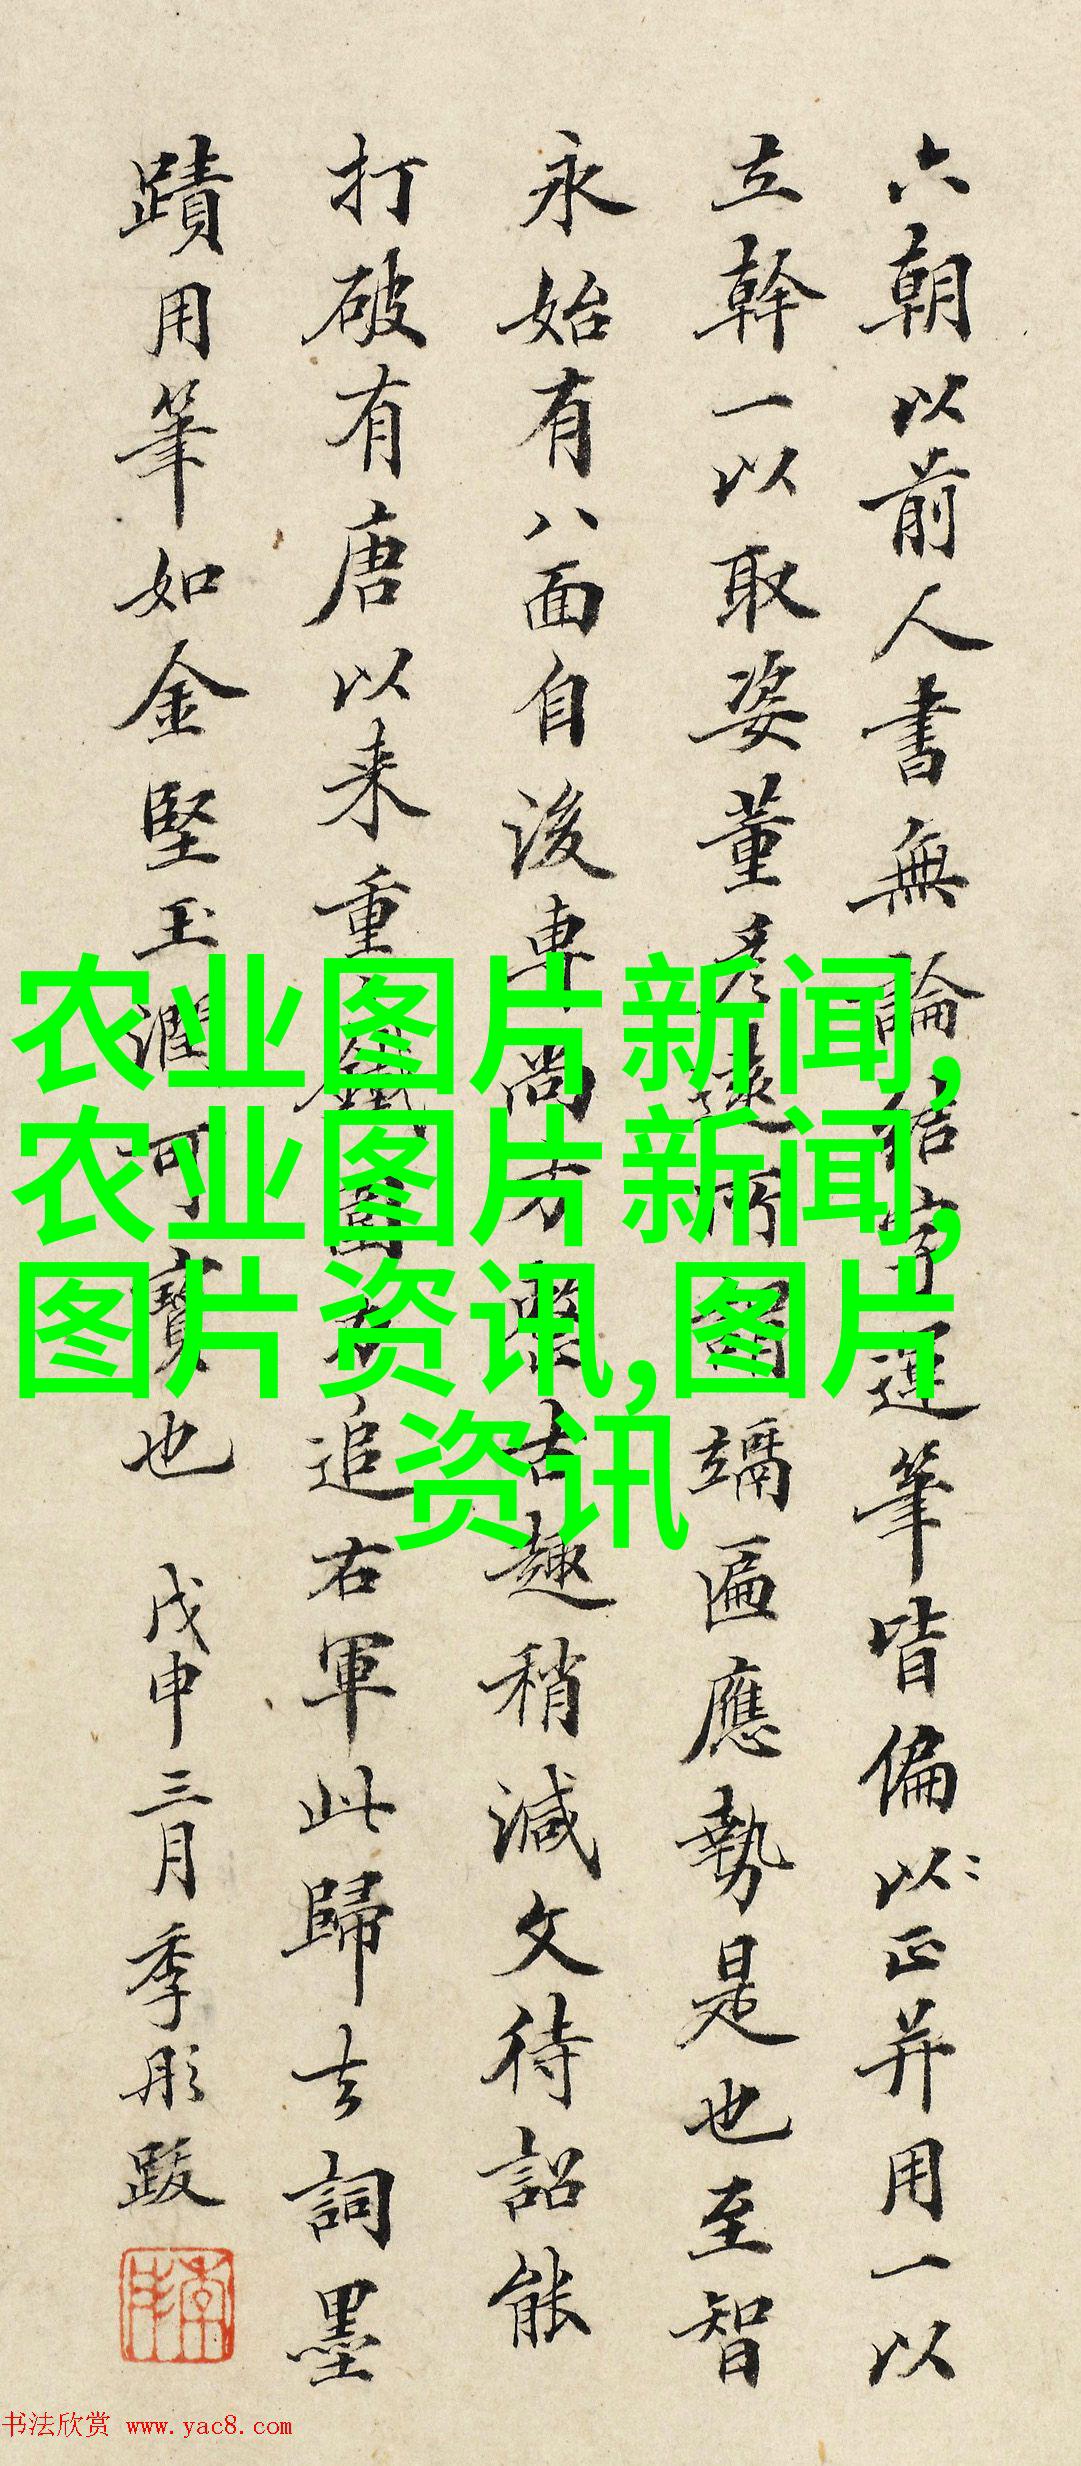 六朝以前人書無論結字運筆皆偏以正并用一以
立幹一以取姿董彦遠所謂端匾應勢是也至智
永始有八面自後専尚方整古趣稍減文待詔能
打破有唐以来重追右軍此歸去詞墨
蹟用筆如金堅玉潤可寶也 戊申三月季彤跋
农业图片新闻,
农业图片新闻,
图片资讯,图片
资讯
书法欣赏 www.yac8.com